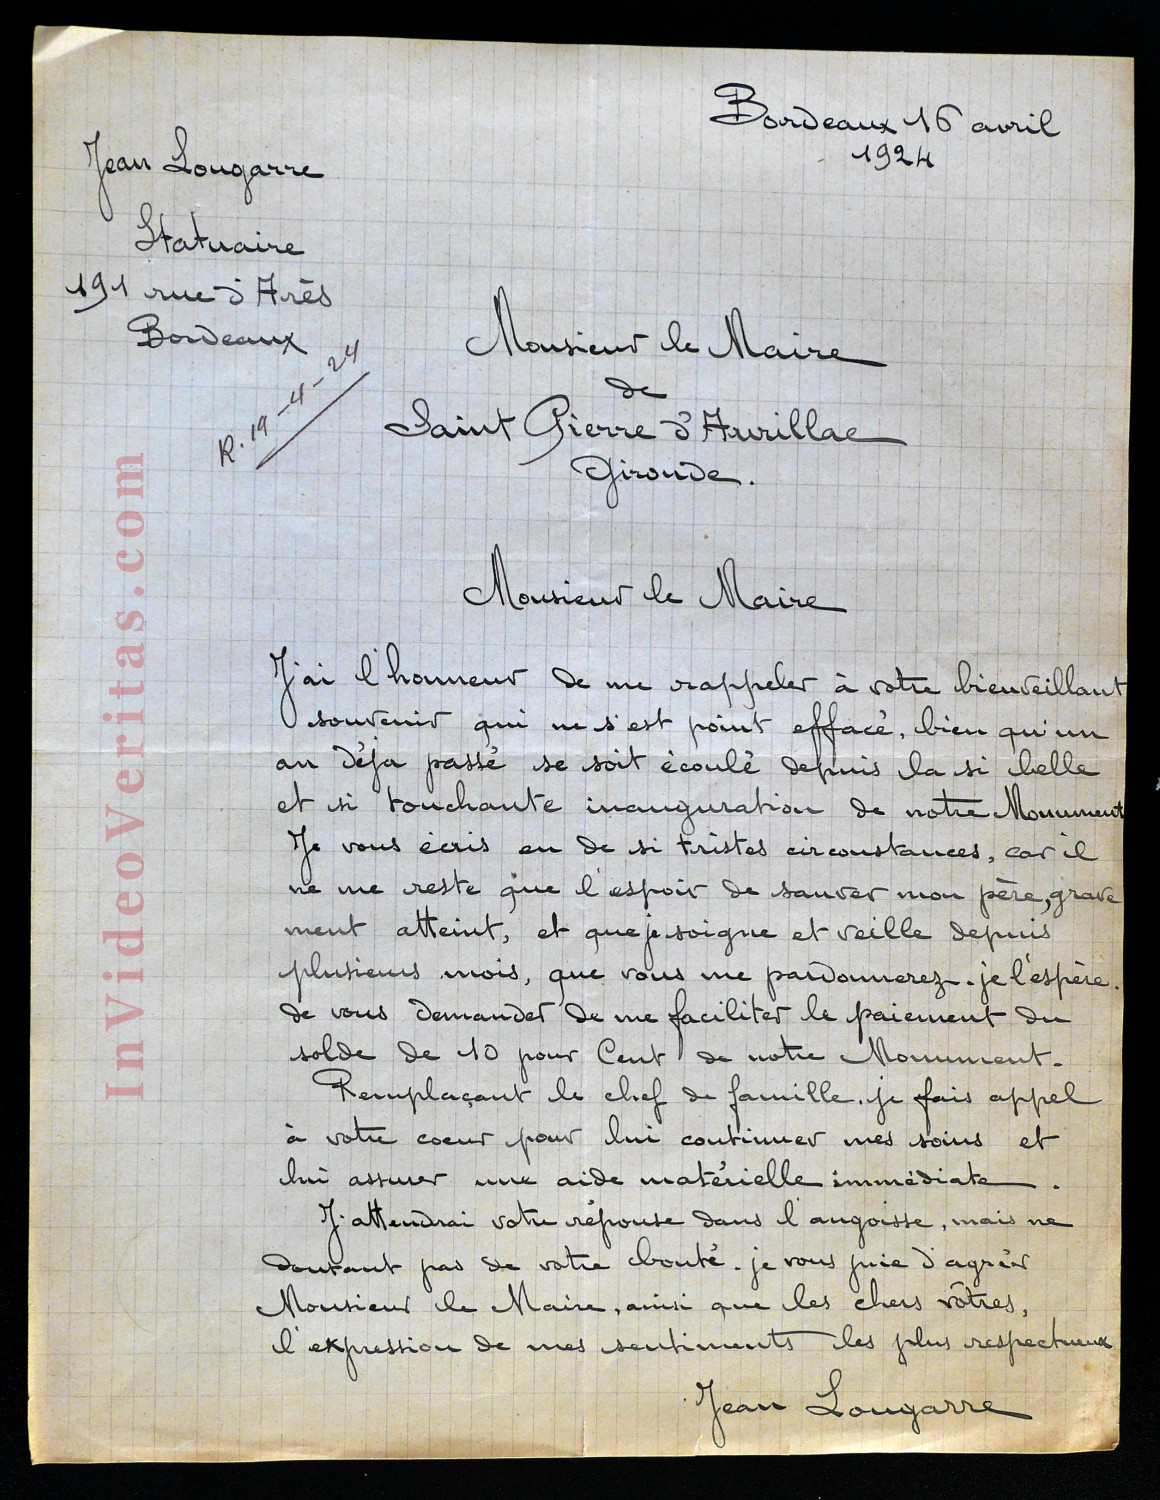 Bordeaux 16 avril
1924
Jean Lougarre
Statuaire
191 rue d'Arès
Bordeaux
R. 19-4-24
Monsieur le Maire
de
Saint Pierre d'Aurillac
Gironde.
Monsieur le Maire
J'ai l'honneur de me rappeler à votre bienveillant
souvenir qui ne s'est point effacé, bien qu'un
an déja passé se soit écoulé depuis la si belle
et si touchante inauguration de notre Monument
Je vous écris en de si tristes circonstances, car il
ne me reste que l'espoir de sauver mon père, grave
ment atteint, et que je soigne et veille depuis
plusieurs mois, que vous me pardonnerez. je l'espère.
de vous demander de me faciliter le paiement du
solde de 10 pour Cent de notre Monument.
Remplaçant le chef de famille. je fais appel
à votre coeur pour lui continuer mes soins et
lui assurer une aide matérielle immédiate.
J'attendrai votre réponse dans l'angoisse, mais ne
doutant pas de votre bonté. je vous prie d'agréer
Monsieur le Maire, ainsi que les chers vôtres,
l'expression de mes sentiments les plus respectueux
Jean Lougarre
InVideoVeritas.com